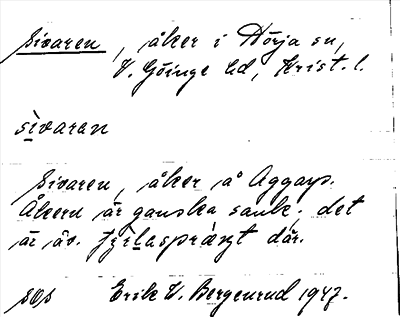 Sivaren, åker i Hörja sn,
V. Göinge hd, Krist. l.
sivaren
Sivaren, åker å Aggarp.
Åkern är ganska sank; det
är äv. där.
sos Erik W. Bergenrud 1947.